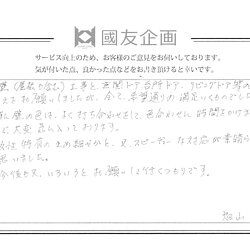 國友企画
サービス向上のため、お客様のご意見をお伺いしております。
気が付いた点、良かった点などをお書き頂けると幸いです。
壁(屋根も含む)工事と玄関ドア、台所ドア、リビングドア等の
お願いしましたが、全て、希望通りの満足いくものでした
壁の色は、よく打ち合わせをして、色合わせし、時間をかけ
大変喜んでおります。
女性特有のきめ細かさと、又、スピーディな対応が素晴ら
思いました。
今後も又、いろいろとお願いして行くつもりです。